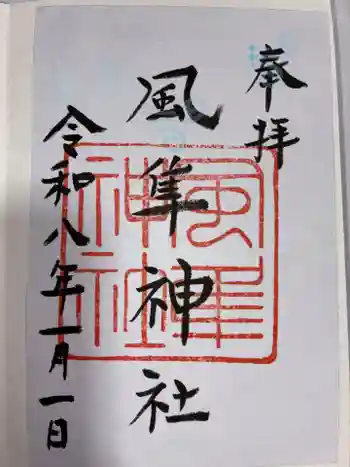 奉拝
風隼神社
令和八年一月一日
風隼
神社